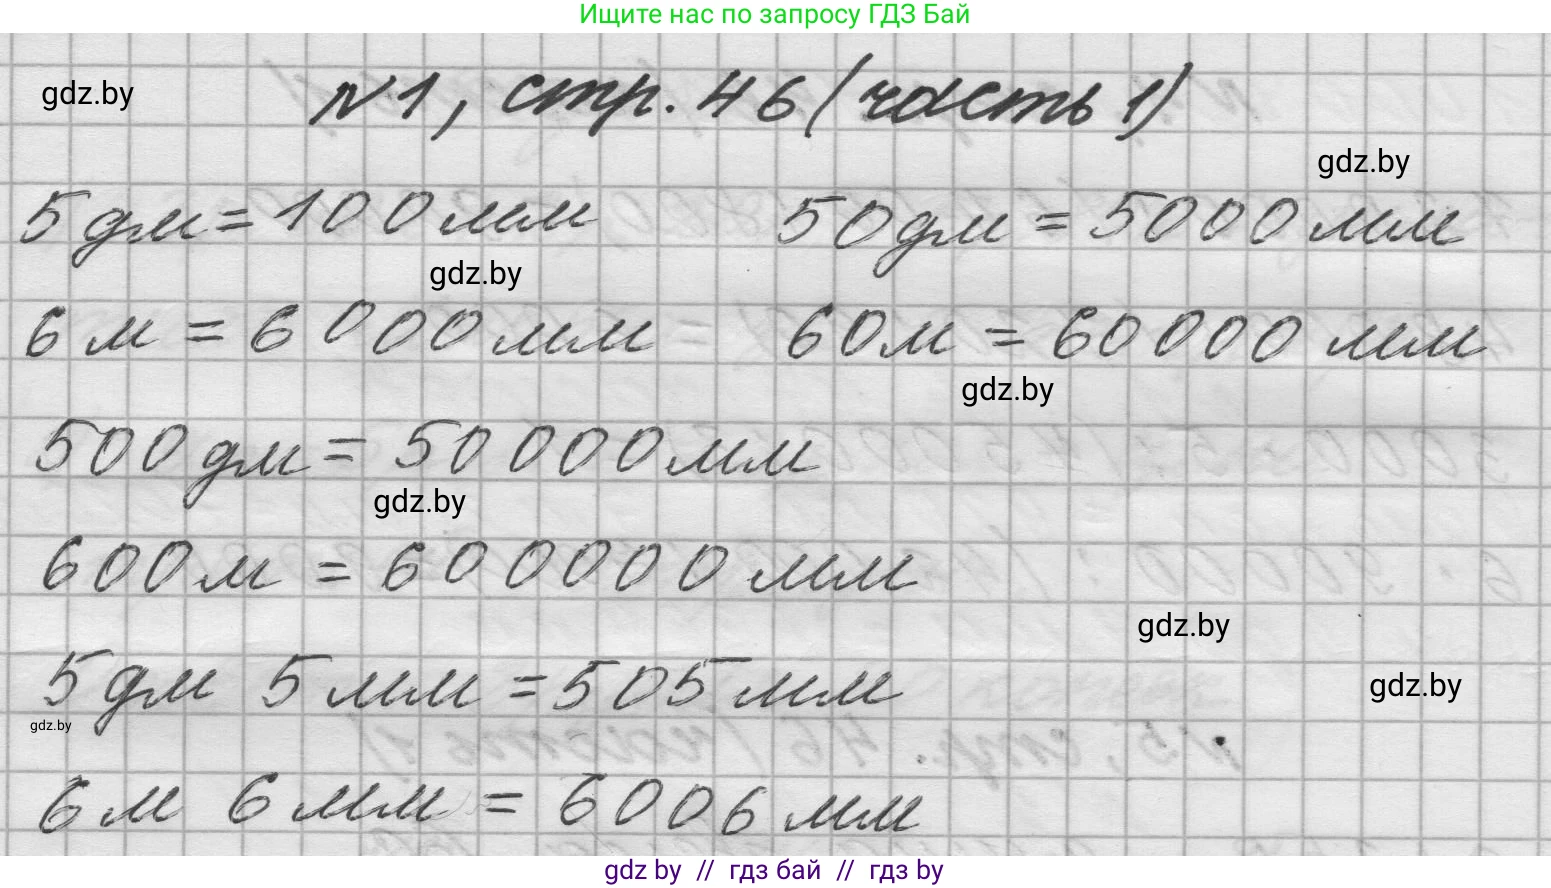 Ищите нас по запросу ГДЗ Бай
gdz.by
№1, стр. 46 (часть 1)
gdz.by
5дм = 100мм 50дм = 5000мм
gdz.by
6м = 6000мм 60м = 60000мм
gdz.by
500дм = 50000мм
gdz.by
600м = 600000мм
gdz.by
5дм 5мм = 505мм
gdz.by
gdz.by
6м 6мм = 6006мм
gdz by // гдз бай // гдз by